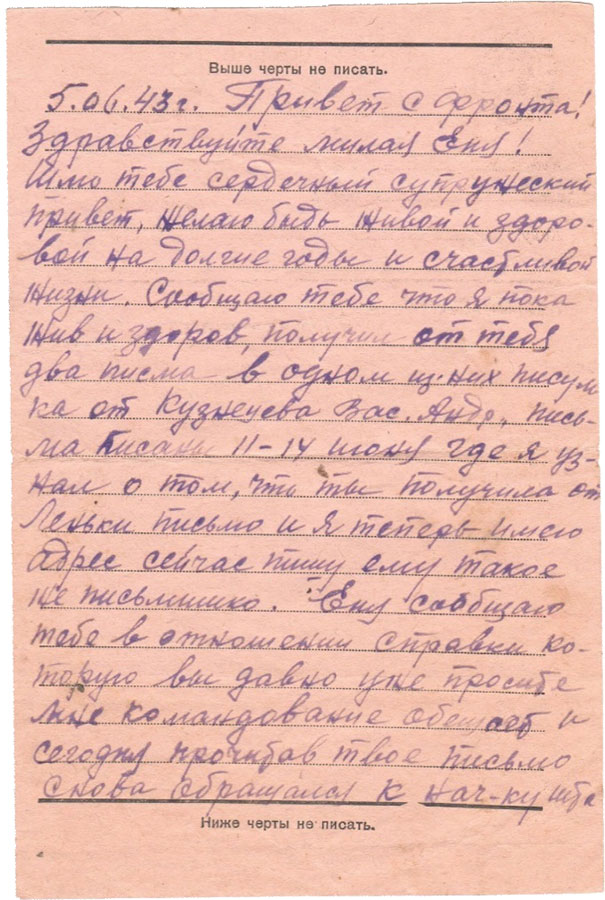 Выше черты не писать.
5.06.43г. Привет с фронта!
Здравствуйте милая Еня!
Шлю тебе сердечный супружеский
привет, желаю быдь живой и здоро-
вой на долгие годы и счастливой
жизни. Сообщаю тебе что я пока
жив и здоров, получил от тебя
два писма в одном из них писул
ка от Кузнецева Вас. Андр. пись-
ма писаны 11-14 июня где я уз-
нал о том, что ты получила от
Леньки письмо и я теперь имею
адрес сейчас пишу ему такое
же письмишко. Еня сообщаю
тебе в отношении справки ко-
торую вы давно уже просите
мне командование обещает и
сегодня прочитав твое письмо
снова обращался к нач-ку шта
Ниже черты не писать.